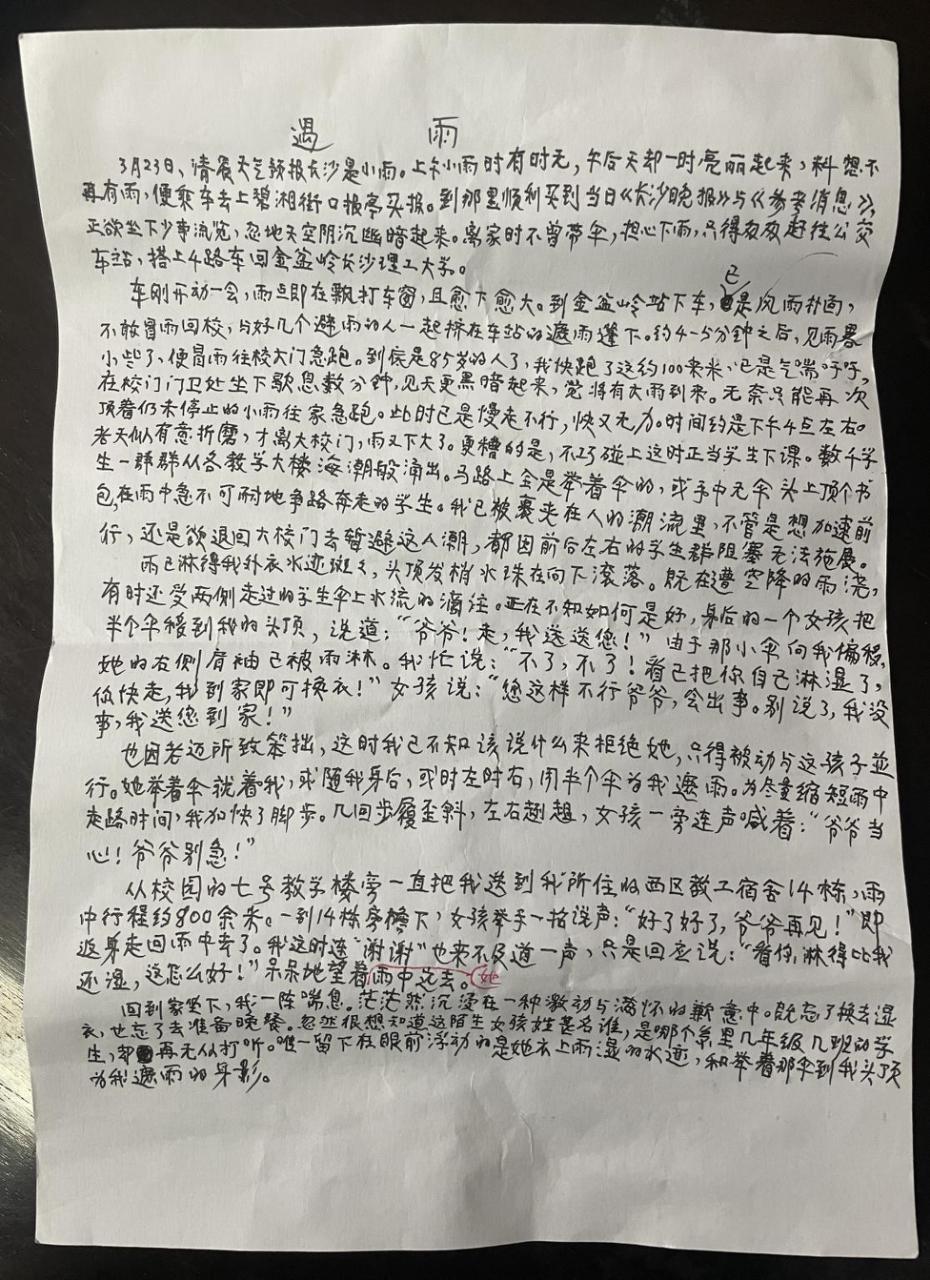 遇雨
3月23日、清晨天气预报长沙是小雨。上午小雨时有时无，午后天却一时亮丽起来，料想不
再有雨，便乘车去上碧湘街口报亭买报。到那里顺利买到当日《长沙晚报》与《参考消息》，
正欲坐下少事浏览，忽地天空阴沉幽暗起来。离家时不曾带伞，担心下雨，只得匆匆赶往公交
车站，搭上4路车回金盆岭长沙理工大学。
车刚开动一会，雨点即在飘打车窗，且愈下愈大。到金盆岭站下车，已是风雨扑面，
不敢冒雨回校，与好几个避雨的人一起挤在车站的遮雨蓬下。约4-5分钟之后，见雨署
小些了、便冒雨往校大门急跑。到底是85岁的人了，我快跑了这约100来米、已是气喘呼呼，
在校门门卫处坐下歇息数分钟，见天更黑暗起来，觉将有大雨到来。无奈只能再次
顶着仍未停止的小雨往家急跑。此时已是慢走不行，快又无力。时间约是下午4点左右。
老天似有意折磨，才离大校门，雨又下大了。更糟的是，不巧碰上这时正当学生下课。数千学
生一群群从各教学大楼海潮般涌出。马路上全是举着伞的，或手中无伞头上顶个书
包，在雨中急不可耐地争路奔走的学生。我已被裹夹在人的潮流里，不管是想加速前
行，还是欲退回大校门去暂避这人潮，都因前后左右的学生群阻塞无法施展。
雨已淋得我外衣水迹斑々，头顶发梢水珠在向下滚落。既在遭空降的雨浇，
有时还受两侧走过的学生伞上水流的滴注。正在不知如何是好，身后的一个女孩把
半个伞移到我的头顶，说道：“爷爷！走，我送送您！”由于那小伞向我偏移，
她的右侧肩袖已被雨淋。我忙说：“不了，不了！看已把你自己淋湿了，
你快走，我到家即可换衣！”女孩说：“您这样不行爷爷，会出事。别说了，我没
事，我送您到家！”
也因老迈所致笨拙，这时我已不知该说什么来拒绝她，只得被动与这孩子並
行。她举着伞就着我，或随我身后，或时左时右，用半个伞为我遮雨。为尽量缩短雨中
走路时间，我加快了脚步。几回步履歪斜，左右趔趄，女孩一旁连声喊着：“爷爷当
心！爷爷别急！”
从校园的七号教学楼旁一直把我送到我所住的西区教工宿舍14栋，雨
中行程约800余米。一到14栋旁檐下，女孩举手一抬说声：“好了好了，爷爷再见！”即
返身走回雨中去了。我这时连“谢谢”也来不及道一声，只是回应说：“看你，淋得比我
还湿，这怎么好！”呆呆地望着她雨中远去。
回到家坐下，我一阵喘息。茫茫然沉浸在一种激动与满怀的歉意中。既忘了换去湿
衣，也忘了去准备晚餐。忽然很想知道这陌生女孩姓甚名谁，是哪个系里几年级几班的学
生，却再无从打听。唯一留下在眼前浮动的是她衣上雨湿的水迹，和举着那伞到我头顶
为我遮雨的身影。